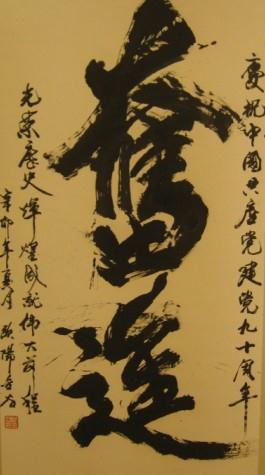 慶祝中國共產党建党九十周年
奮進
光榮歷史輝煌成就偉大程
辛卯年夏月